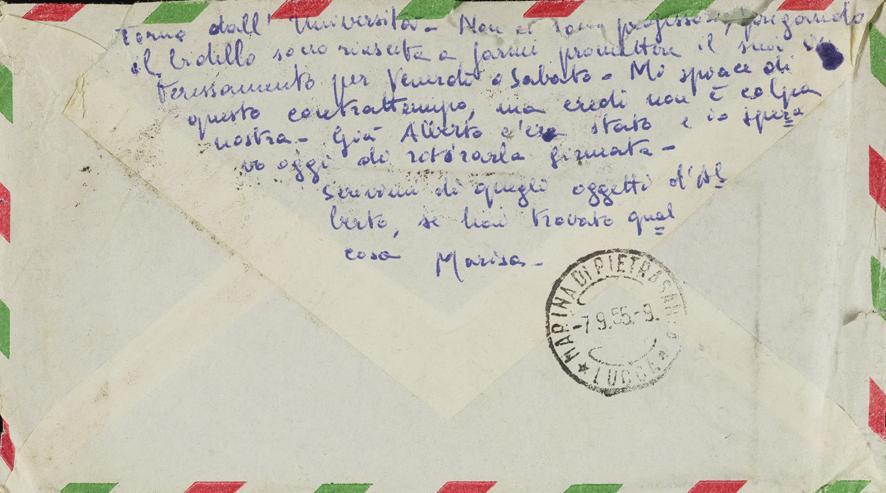 Torno dall' Università - Non ci sono professori, pregando
il bidello sono riuscita a farmi promettere il suo in
teressamento per Venerdì o Sabato - Mi spiace di
questo contrattempo, ma credi non è colpa
nostra - Già Alberto c'era stato e io spera
vo oggi di ritirarla firmata -
Scrivimi di quegli oggetti d'Al
berto, se hai trovato qual
cosa Marisa -
MARINA DI PIETRASANTA
-7.9.55.-9.
* LUCCA *